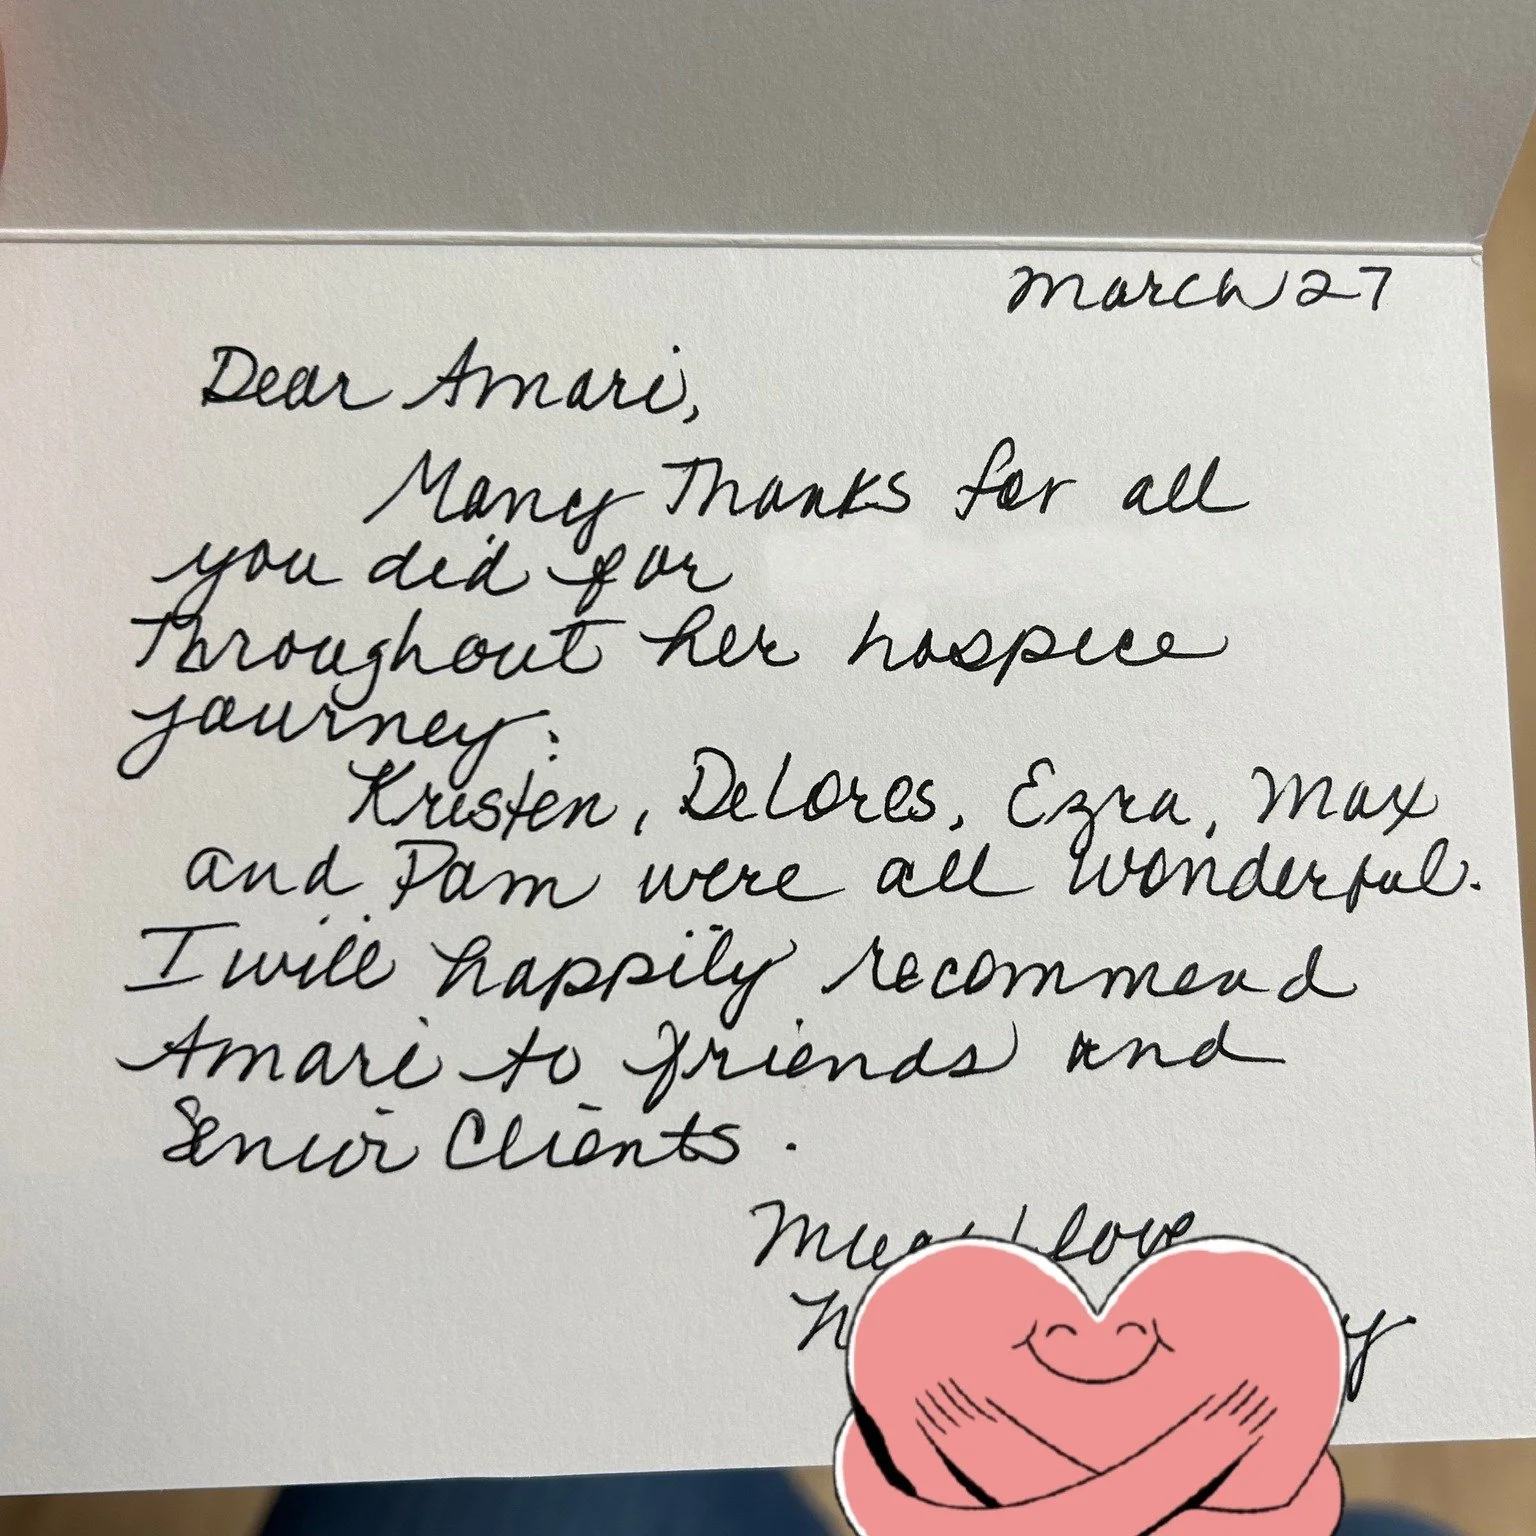 March 27
Dear Amari,
Many Thanks for all
you did for
Throughout her hospice
journey.
Kristen, DeLores, Ezra, Max
and Pam were all wonderful.
I will happily recommend
Amari to friends and
Senior Clients.
love